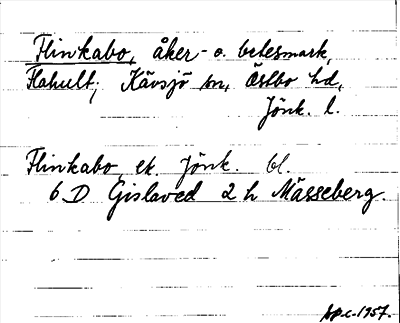 Flinkabo, åker- o. betesmark,
Flahult; Kävsjö sn, Östbo hd,
Jönk. l.
Flinkabo, ek. Jönk. bl.
6 D Gislaved 2 h Mässeberg.
1957.